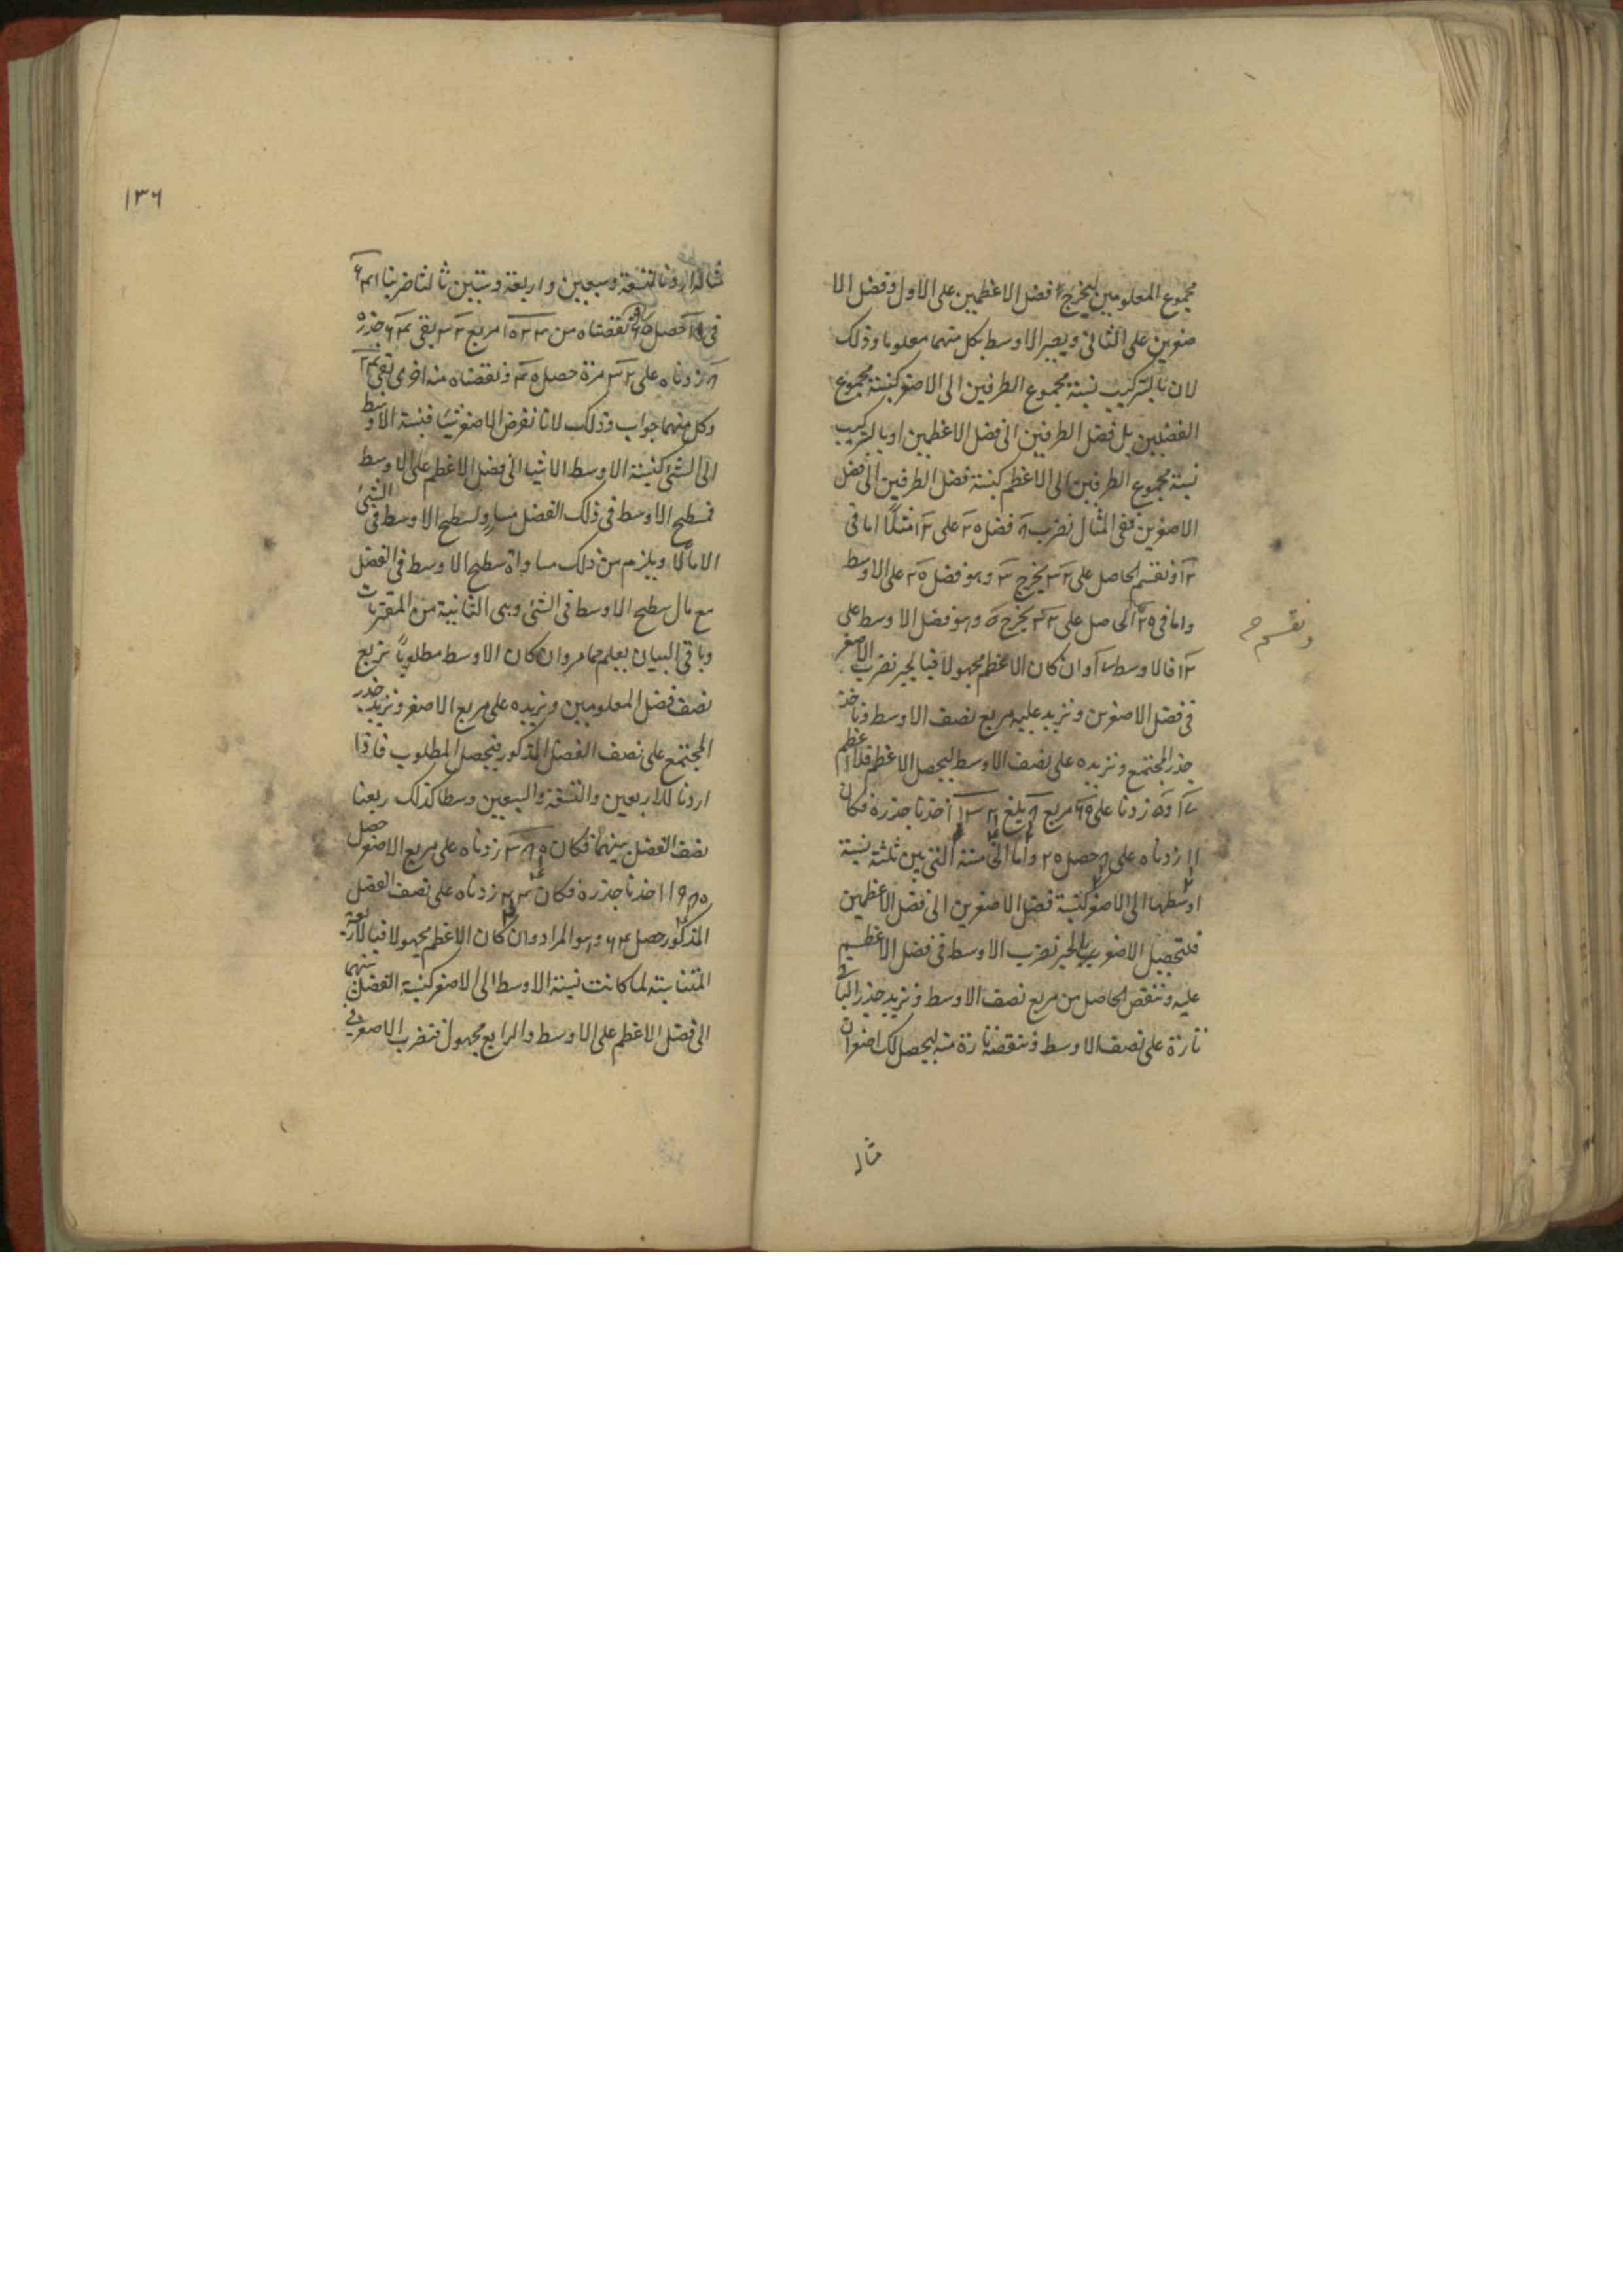 مجموع المعلومين ليخرج فضل الاعظمين على الاول وفضل الا
صغرين على الثانى ويصير الاوسط بكل منهما معلوما وذلك
لان بالتركيب نسبة مجموع الطرفين الى الاصغر كنسبة مجموع
الفضلين بل فضل الطرفين الى فضل الاعظمين او بالتركيب
نسبة مجموع الطرفين الى الاعظم كنسبة فضل الطرفين الى فضل
الاصغرين ففى المثال نضرب ٨ فضل ٢٠ على ١٢ مثلا اما فى
١٢ ونقسم الحاصل على ٣٢ يخرج ٣ وهو فضل ٢٠ على الاوسط
واما فى ٢٠ الحاصل على ٣٢ يخرج ٥ وهو فضل الاوسط على
ونقسم
١٢ فالاوسط ١٧ وان كان الاعظم مجهولا فبالجبر نضرب الاصغر
فى فضل الاصغرين ونزيد عليه مربع نصف الاوسط وناخذ
جذر المجتمع ونزيده على نصف الاوسط ليحصل الاعظم
زدنا على مربع يبلغ اخذنا جذره فكان
١١ زدناه على حصل ٢٠ واما التى بين ثلثة نسبة
اوسطها الى الاصغر كنسبة فضل الاصغرين الى فضل الاعظمين
فلتحصيل الاصغر بالجبر نضرب الاوسط فى فضل الاعظم
عليه وننقص الحاصل من مربع نصف الاوسط ونزيد جذر الباقى
تارة على نصف الاوسط وننقصه تارة منه ليحصل لك اصغران
مثاله
١٣٦
مثاله اردنا لتسعة وسبعين واربعة وستين ثالثا ضربنا
فى حصل نقصناه من مربع بقى جذره
زدناه على ٣٢ مرة حصل ٤٠ ونقصناه منه اخرى بقى ٢٤
وكل منهما جواب وذلك لانا نفرض الاصغر شيئا فنسبة الاوسط
الى الشئ كنسبة الاوسط الا شيئا الى فضل الاعظم على الاوسط
فمسطح الاوسط فى ذلك الفضل مساو لمسطح الاوسط فى الشئ
الا مالا ويلزم من ذلك مساواة سطح الاوسط فى الفضل
مع مال سطح الاوسط فى الشئ وهى الثانية من المقترنات
وباقى البيان يعلم مما مر وان كان الاوسط مطلوبا نربع
نصف فضل المعلومين ونزيده على مربع الاصغر ونزيد جذر
المجتمع على نصف الفضل المذكور فيحصل المطلوب فاذا
اردنا للاربعين والتسعة والسبعين وسطا كذلك ربعنا
نصف الفضل بينهما فكان زدناه على مربع الاصغر حصل
اخذنا جذره فكان زدناه على نصف الفضل
المذكور حصل ٦٤ وهو المراد وان كان الاعظم مجهولا فبالاربعة
المتناسبة لما كانت نسبة الاوسط الى الاصغر كنسبة الفضل بينهما
الى فضل الاعظم على الاوسط والرابع مجهول فنضرب الاصغر فى